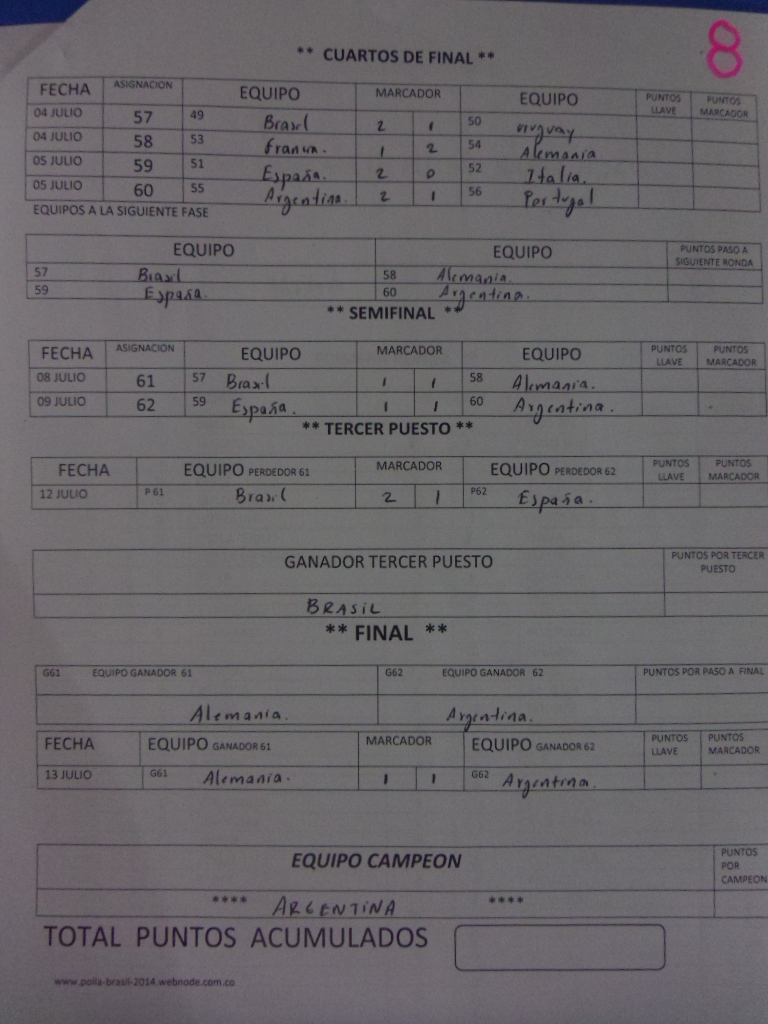 8
** CUARTOS DE FINAL **
FECHA ASIGNACION EQUIPO MARCADOR EQUIPO PUNTOS LLAVE PUNTOS MARCADOR
04 JULIO 57 49 Brasil 2 1 50 uruguay
04 JULIO 58 53 1 2 54 Alemania
05 JULIO 59 51 España. 2 0 52 Italia.
05 JULIO 60 55 Argentina. 2 1 56 Portugal
EQUIPOS A LA SIGUIENTE FASE
EQUIPO EQUIPO PUNTOS PASO A SIGUIENTE RONDA
57 Brasil 58 Alemania.
59 España. 60 Argentina.
** SEMIFINAL **
FECHA ASIGNACION EQUIPO MARCADOR EQUIPO PUNTOS LLAVE PUNTOS MARCADOR
08 JULIO 61 57 Brasil 1 1 58 Alemania.
09 JULIO 62 59 España. 1 1 60 Argentina.
** TERCER PUESTO **
FECHA EQUIPO PERDEDOR 61 MARCADOR EQUIPO PERDEDOR 62 PUNTOS LLAVE PUNTOS MARCADOR
12 JULIO P 61 Brasil 2 1 P62 España.
GANADOR TERCER PUESTO PUNTOS POR TERCER PUESTO
BRASiL
** FINAL **
G61 EQUIPO GANADOR 61 G62 EQUIPO GANADOR 62 PUNTOS POR PASO A FINAL
Alemania. Argentina.
FECHA EQUIPO GANADOR 61 MARCADOR EQUIPO GANADOR 62 PUNTOS LLAVE PUNTOS MARCADOR
13 JULIO G61 Alemania. 1 1 G62 Argentina.
EQUIPO CAMPEON PUNTOS POR CAMPEON
**** ARGENTiNA ****
TOTAL PUNTOS ACUMULADOS
www.polla-brasil-2014.webnode.com.co